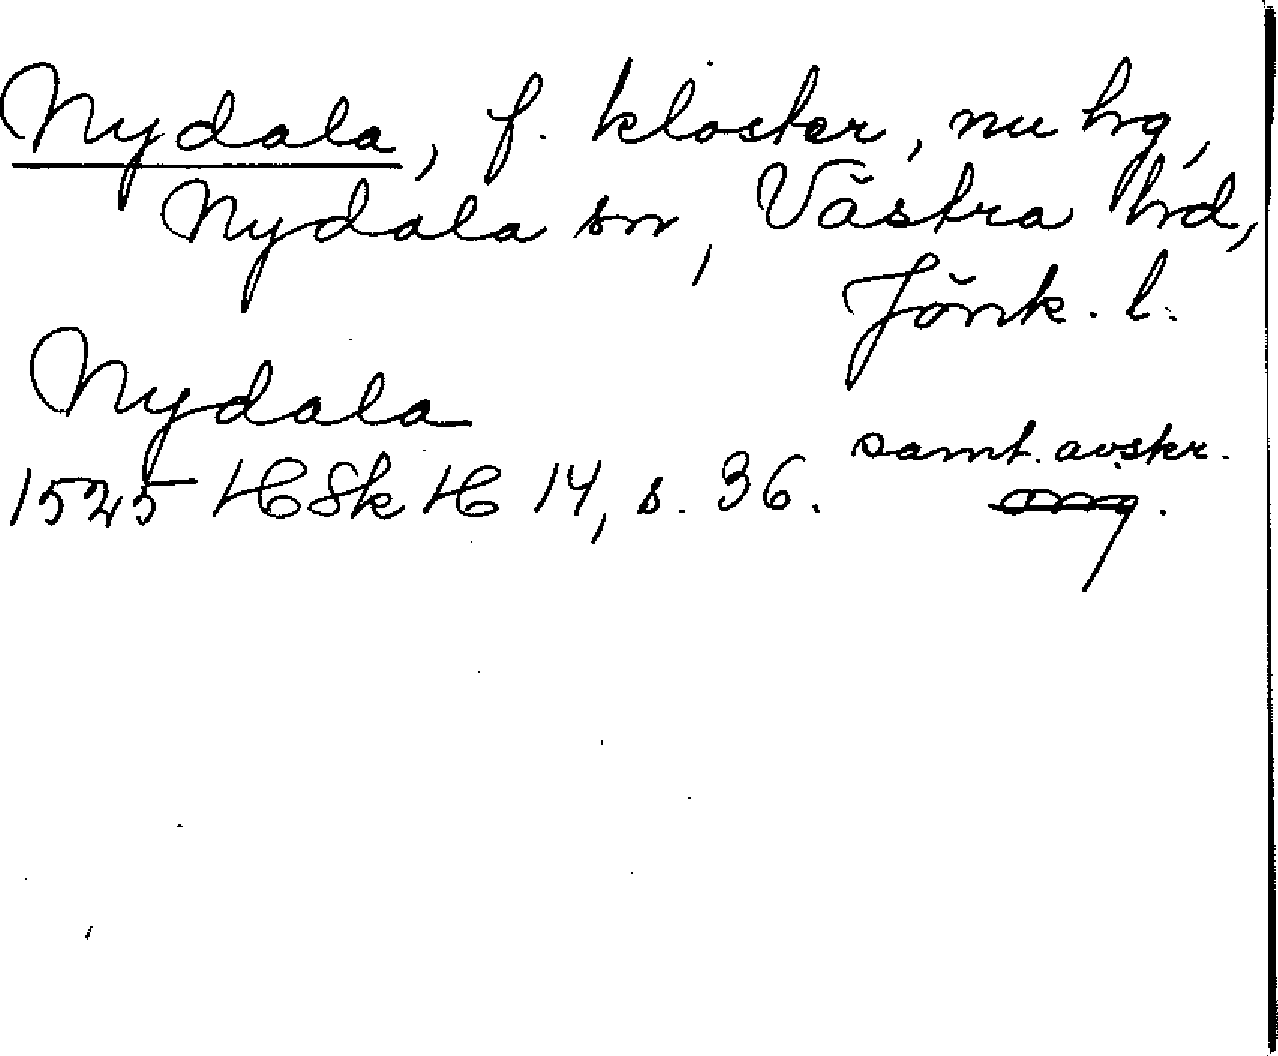 Nydala, f. kloster, nu hg,
Nydala sn, Västra hd,
Jönk. l.
Nydala
samt. avskr.
1525 HSk H 14, s. 36.